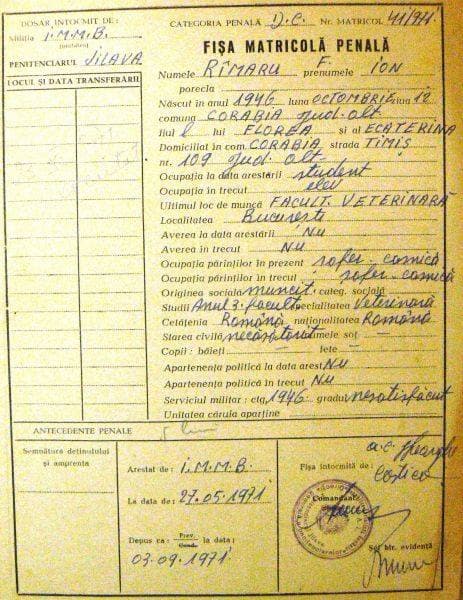 DOSAR ÎNTOCMIT DE:
Miliția I.M.M.B.
(unitatea)
PENITENCIARUL JILAVA
CATEGORIA PENALĂ D.C. Nr. MATRICOL 411/971
FIȘA MATRICOLĂ PENALĂ
LOCUL ȘI DATA TRANSFERĂRII
Numele RÎMARU F. prenumele ION
porecla
Născut în anul 1946 luna OCTOMBRIE ziua 12
comuna CORABIA jud. Olt
fiul l lui FLOREA și al ECATERINA
Domiciliat în com. CORABIA strada TIMIȘ
nr. 109 jud. Olt
Ocupația la data arestării student
Ocupația în trecut elev
Ultimul loc de muncă FACULT. VETERINARĂ
Localitatea București
Averea la data arestării NU
Averea în trecut NU
Ocupația părinților în prezent șofer - casnică
Ocupația părinților în trecut șofer - casnică
Originea socială muncit. categ. socială
Studii Anul 3. facult. specialitatea Veterinară
Cetățenia Română naționalitatea Română
Starea civilă necăsătorit numele soț. —
Copii: băieți — fete —
Apartenența politică la data arest. NU
Apartenența politică în trecut NU
Serviciul militar: ctg. 1946 gradul nesatisfăcut
Unitatea căruia aparține
ANTECEDENTE PENALE
Semnătura deținutului
și amprenta
Arestat de: I.M.M.B.
La data de: 27.05.1971
Depus ca: Prev. Cond. la data:
03.09.1971
Fișa întocmită de:
Gheorghe
Costică
Comandant
Șef bir. evidență